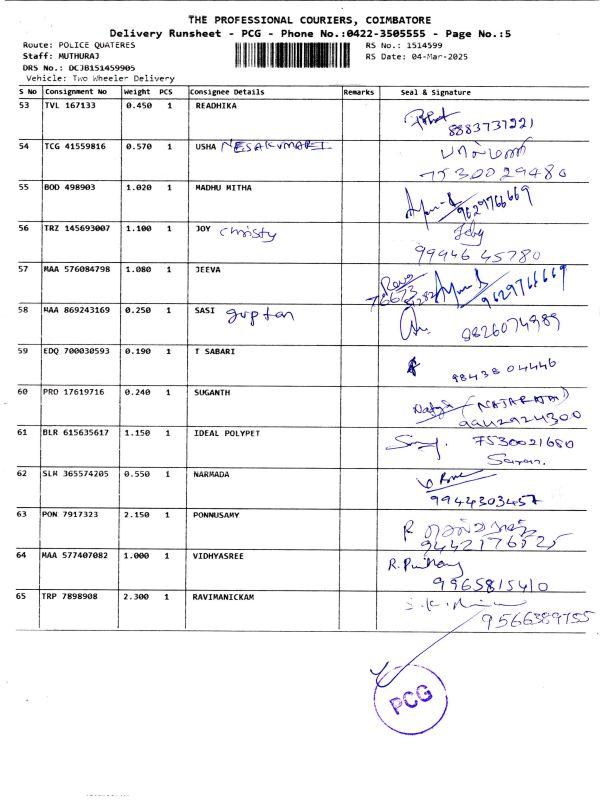 THE PROFESSIONAL COURIERS, COIMBATORE
Delivery Runsheet - PCG - Phone No.:0422-3505555 - Page No.:5
Route: POLICE QUATERES RS No.: 1514599
Staff: MUTHURAJ RS Date: 04-Mar-2025
DRS No.: DCJB151459905
Vehicle: Two Wheeler Delivery
S No Consignment No Weight PCS Consignee Details Remarks Seal & Signature
53 TVL 167133 0.450 1 READHIKA
8883737221
54 TCG 41559816 0.570 1 USHA NESAKUMARI
7530029480
55 BOD 498903 1.020 1 MADHU MITHA
9629766669
56 TRZ 145693007 1.100 1 JOY Christy
99946 45780
57 MAA 576084798 1.080 1 JEEVA
9629766669
58 MAA 869243169 0.250 1 SASI guptan
8826074989
59 EDQ 700030593 0.190 1 T SABARI
98438 04446
60 PRO 17619716 0.240 1 SUGANTH
(NATARAJAN)
9442924300
61 BLR 615635617 1.150 1 IDEAL POLYPET
7530021680
Saran.
62 SLM 365574205 0.550 1 NARMADA
9944303457
63 PON 7917323 2.150 1 PONNUSAMY
64 MAA 577407082 1.000 1 VIDHYASREE
9965815410
65 TRP 7898908 2.300 1 RAVIMANICKAM
9566389755
PCG